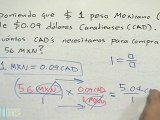 oniendo que $ 1 peso Mexicano (
le $0.09 dólares Canadienses (CAD).
uántos CADs necesitamos para compra
56 MXN?
1 MXN = 0.09 CAD
1 =
56 MXN
0.09 CAD
1
1 MXN
= 5.04
1